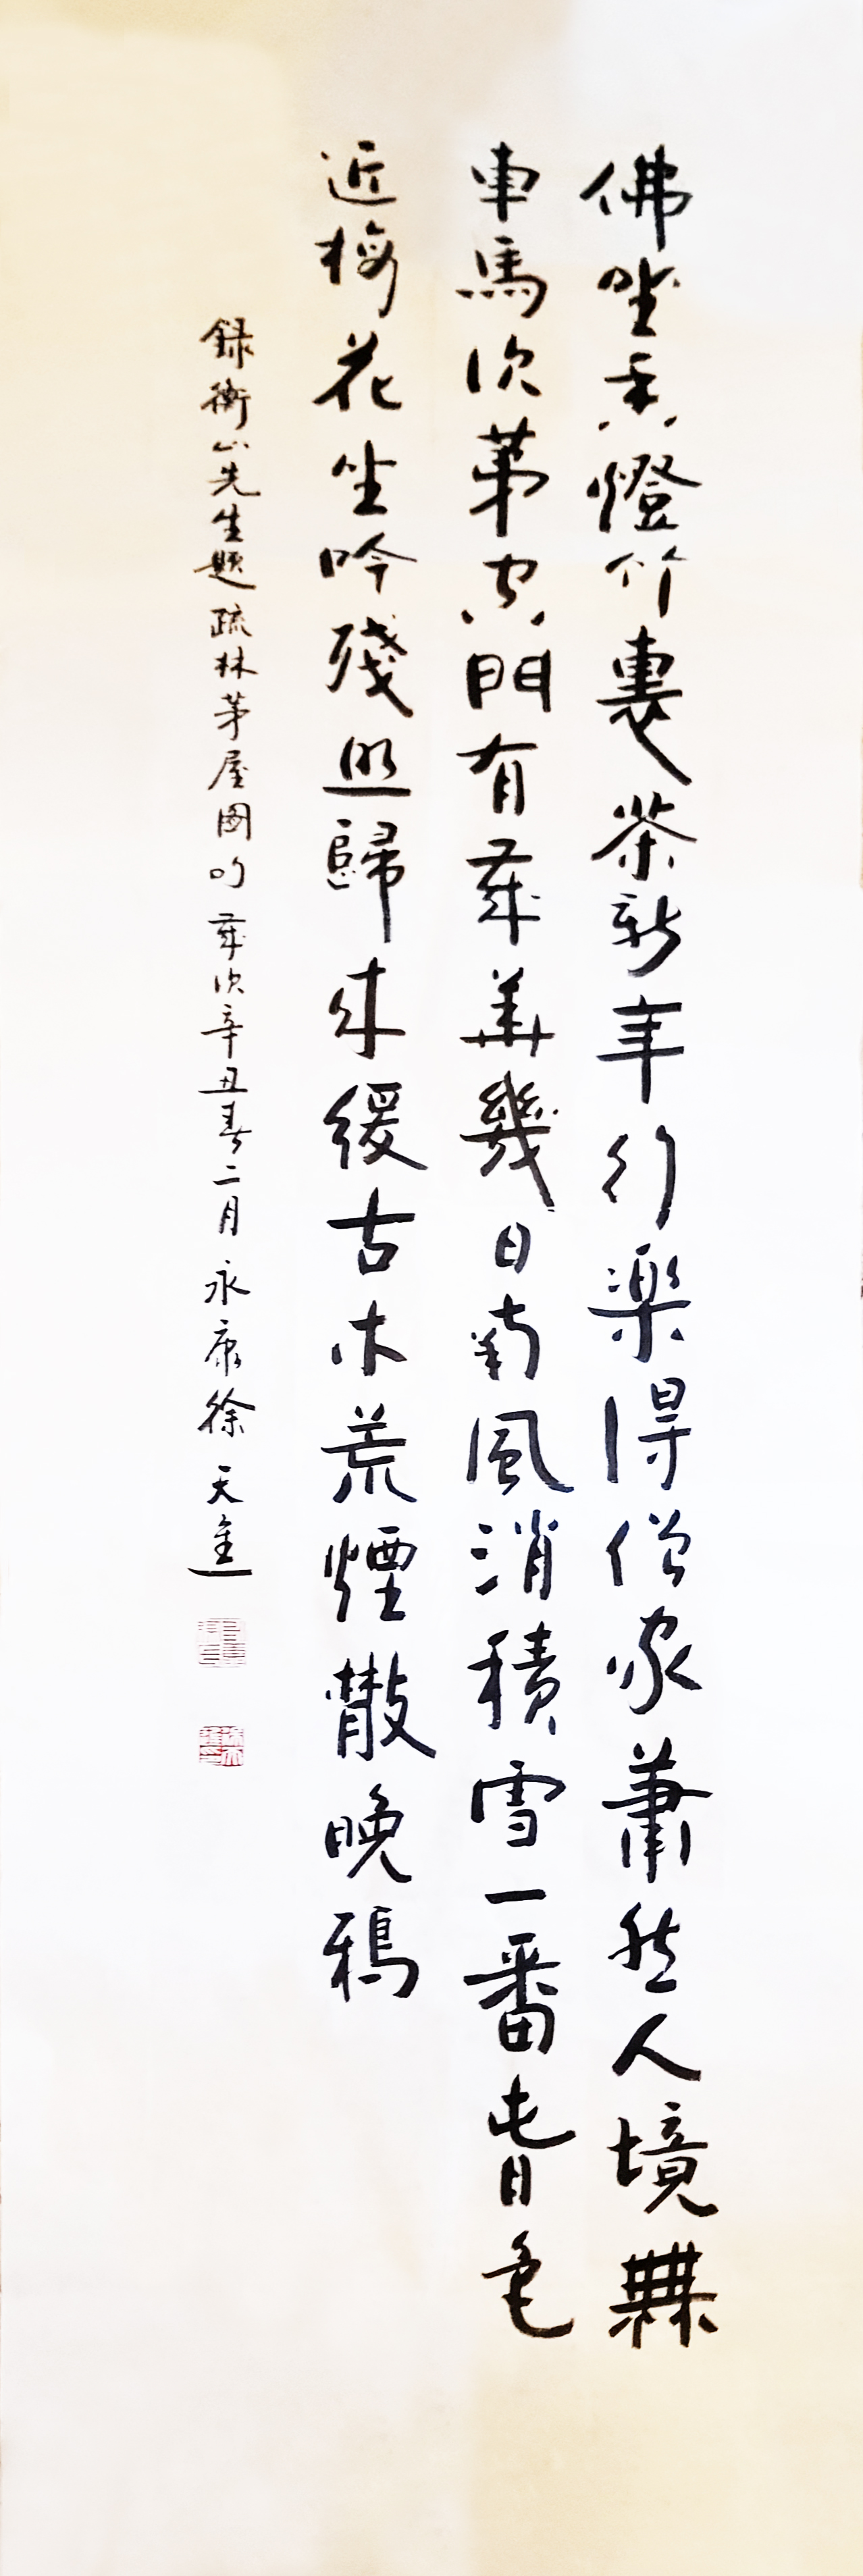 佛坐香燈竹裏茶新年行樂得僧家蕭然人境無
車馬次第空門有歲華幾日南風消積雪一番春色
近梅花坐吟殘照歸來緩古木荒煙散晚鴉
録衡山先生題疏林茅屋圖句 歲次辛丑春二月 永康徐天進